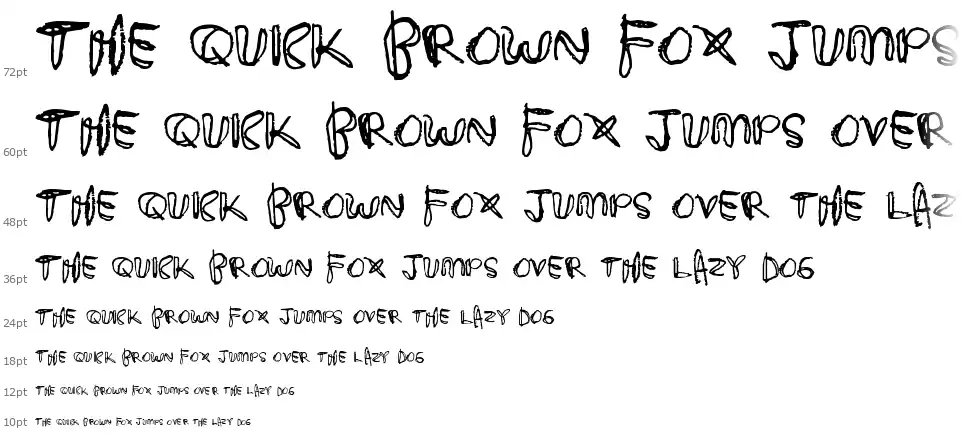 72pt The Quick Brown Fox Jumps
60pt The Quick Brown Fox Jumps over
48pt The Quick Brown Fox Jumps over the laz
36pt The Quick Brown Fox Jumps over the lazy Dog
24pt The Quick Brown Fox Jumps over the lazy Dog
18pt The Quick Brown Fox Jumps over the lazy Dog
12pt The Quick Brown Fox Jumps over the lazy Dog
10pt The Quick Brown Fox Jumps over the lazy Dog